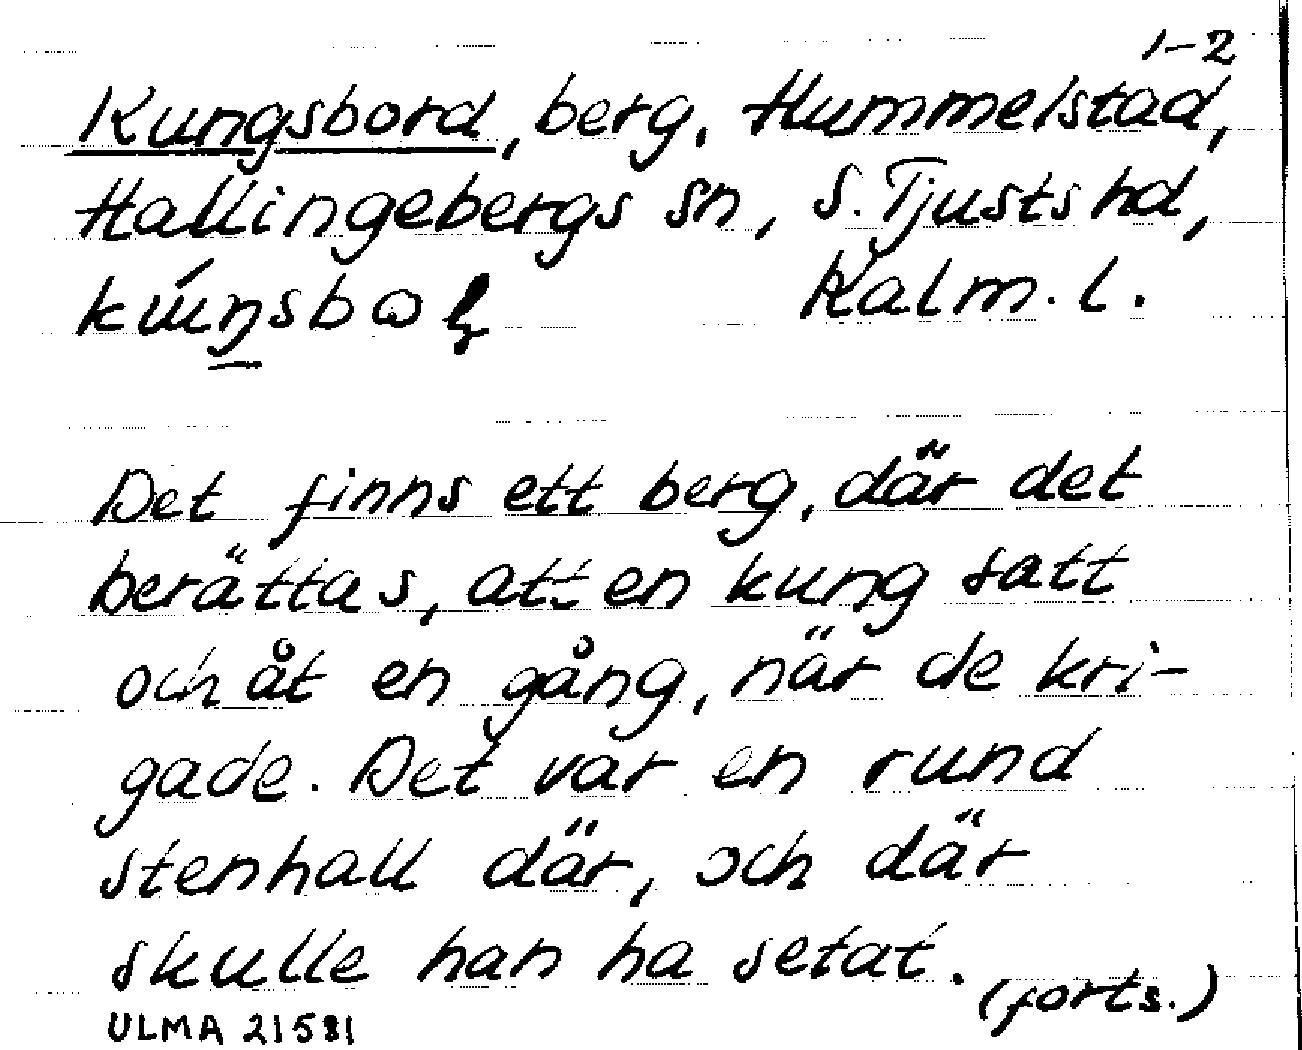 1-2
Kungsbord, berg, Hummelstad,
Hallingebergs sn, S. Tjusts hd,
Kalm. l.
Det finns ett berg, där det
berättas, att en kung satt
och åt en gång, när de kri-
gade. Det var en rund
stenhall där, och där
skulle han ha setat.
(forts.)
ULMA 21581